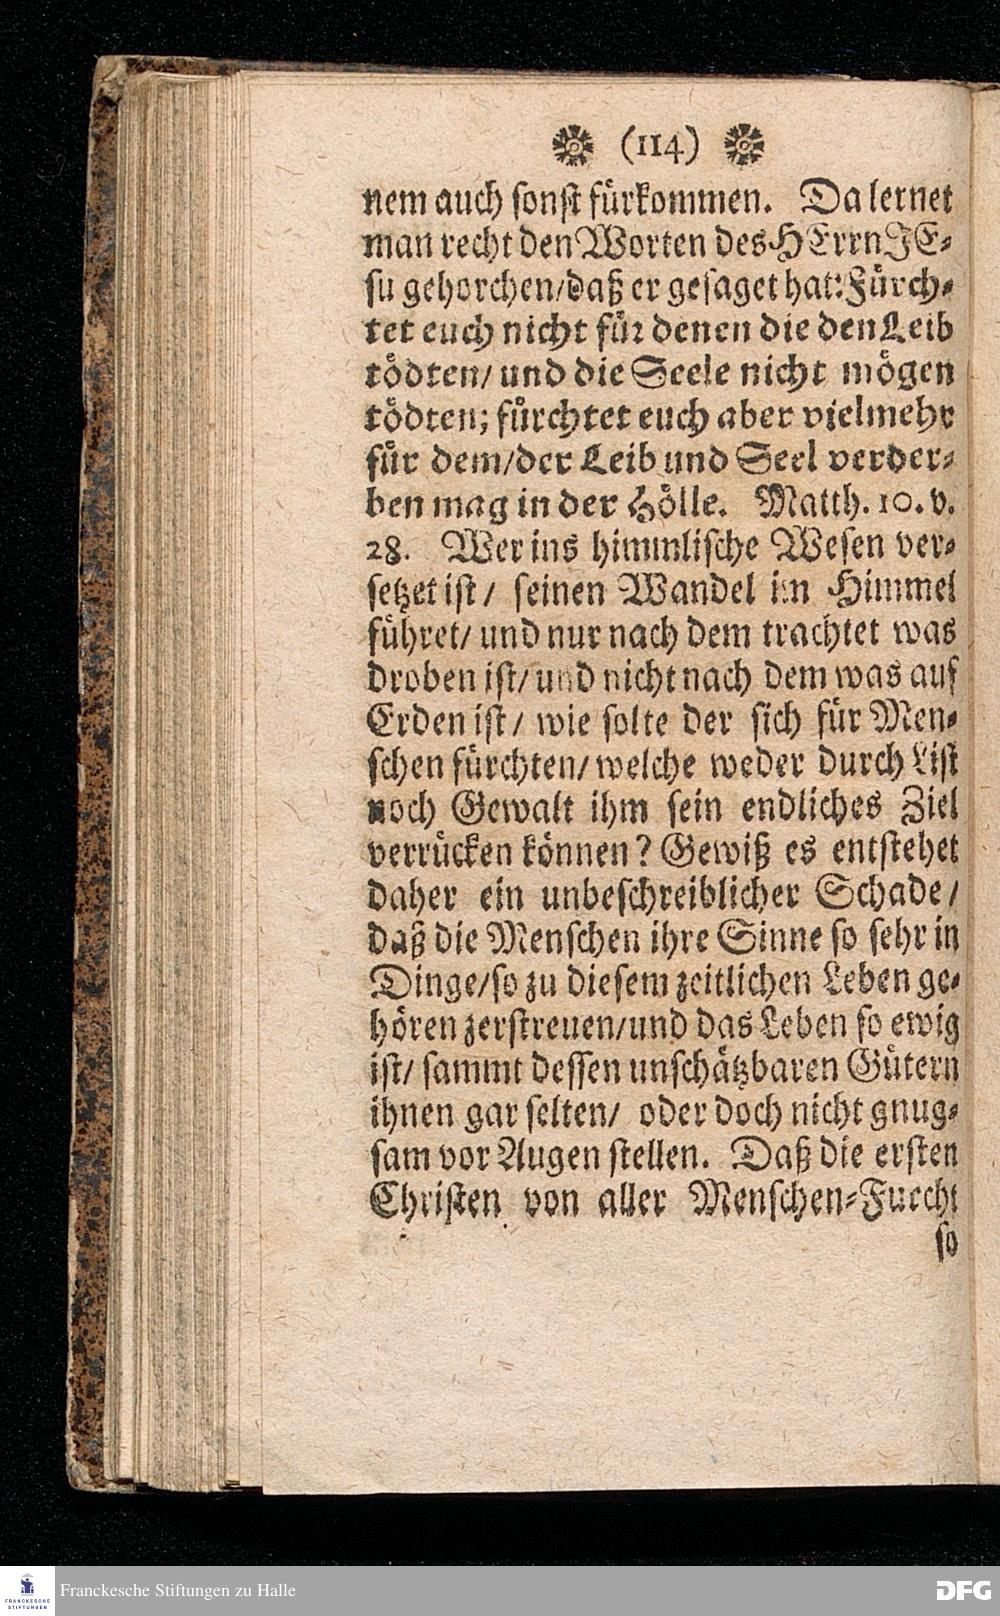 (114)
nem auch sonst fürkommen. Da lernet
man recht den Worten des HErrn JE-
su gehorchen/daß er gesaget hat: Fürch-
tet euch nicht für denen die den Leib
tödten/ und die Seele nicht mögen
tödten; fürchtet euch aber vielmehr
für dem/der Leib und Seel verder-
ben mag in der Hölle. Matth. 10. v.
28. Wer ins himmlische Wesen ver-
setzet ist/ seinen Wandel im Himmel
führet/ und nur nach dem trachtet was
droben ist/ und nicht nach dem was auf
Erden ist/ wie solte der sich für Men-
schen fürchten/ welche weder durch List
noch Gewalt ihm sein endliches Ziel
verrücken können? Gewiß es entstehet
daher ein unbeschreiblicher Schade/
daß die Menschen ihre Sinne so sehr in
Dinge/so zu diesem zeitlichen Leben ge-
hören zerstreuen/und das Leben so ewig
ist/ sammt dessen unschätzbaren Gütern
ihnen gar selten/ oder doch nicht gnug-
sam vor Augen stellen. Daß die ersten
Christen von aller Menschen-Furcht
so
FRANCKESCHE
STIFTUNGEN
Franckesche Stiftungen zu Halle
DFG